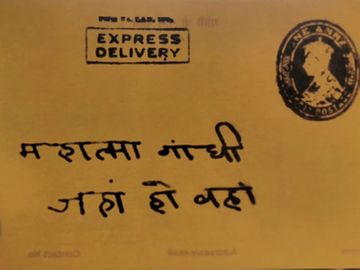 EXPRESS
DELIVERY
ONE ANNA
POST
महात्मा गांधी
जहां हो वहां